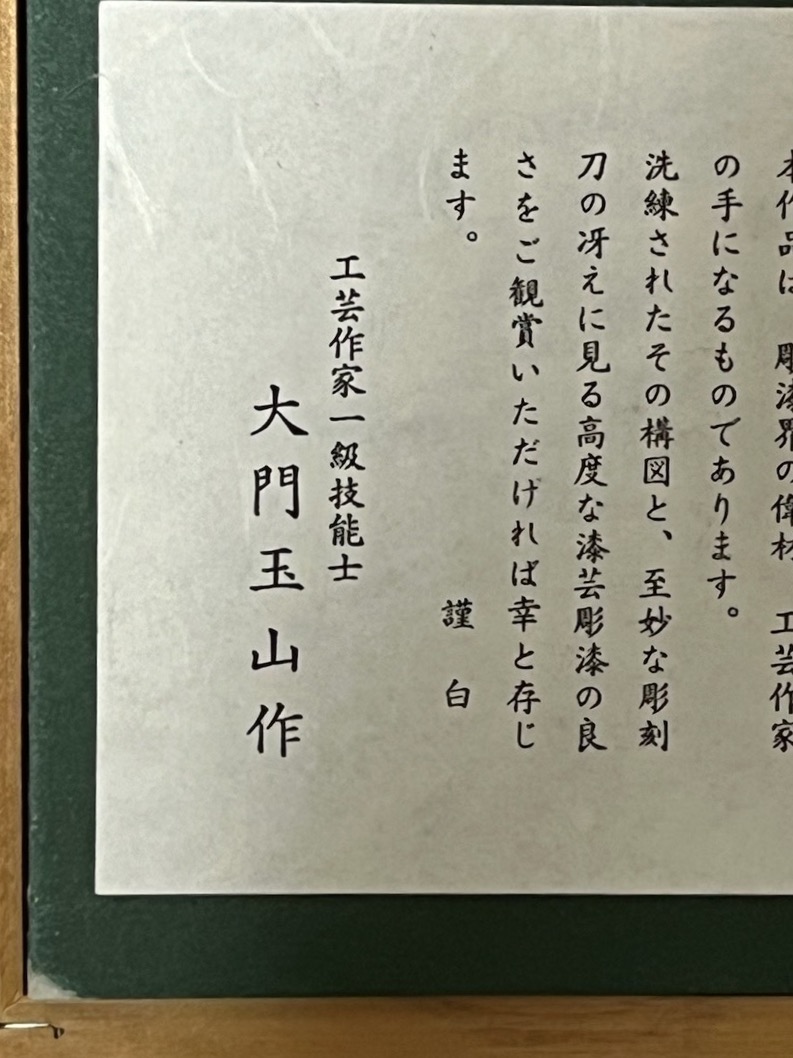 本作品は、彫漆界の偉材 工芸作家
の手になるものであります。
洗練されたその構図と、至妙な彫刻
刀の冴えに見る高度な漆芸彫漆の良
さをご観賞いただければ幸と存じ
ます。
謹白
工芸作家一級技能士
大門玉山作